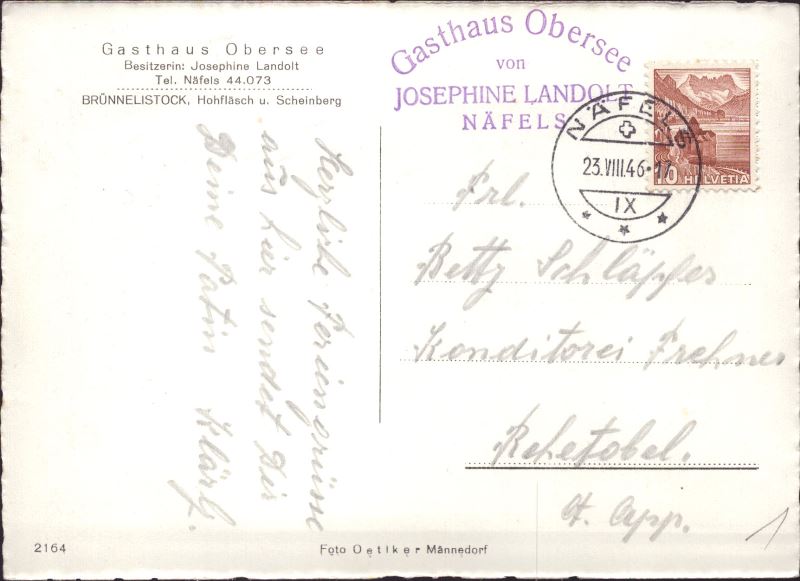 Gasthaus Obersee
Besitzerin: Josephine Landolt
Tel. Näfels 44.073
BRÜNNELISTOCK, Hohfläsch u. Scheinberg
Gasthaus Obersee
von
JOSEPHINE LANDOLT
NÄFELS
NÄFELS
23.VIII.46-17
IX
10 HELVETIA
Herzliche Feriengrüsse
aus hier sendet Dir
Deine Patin Klärli.
Frl.
Betty Schläpfer
Konditorei Frehner
Rehetobel.
Ct. App.
2164
Foto Oetiker Männedorf